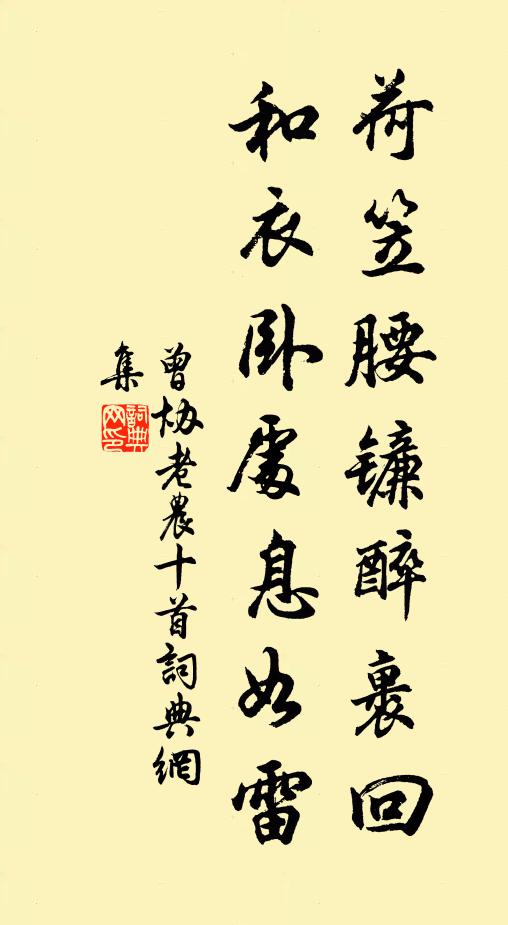 荷笠腰鐮醉裹回
和衣卧處息如雷
曾协老農十首詞典網
集
詞典网印